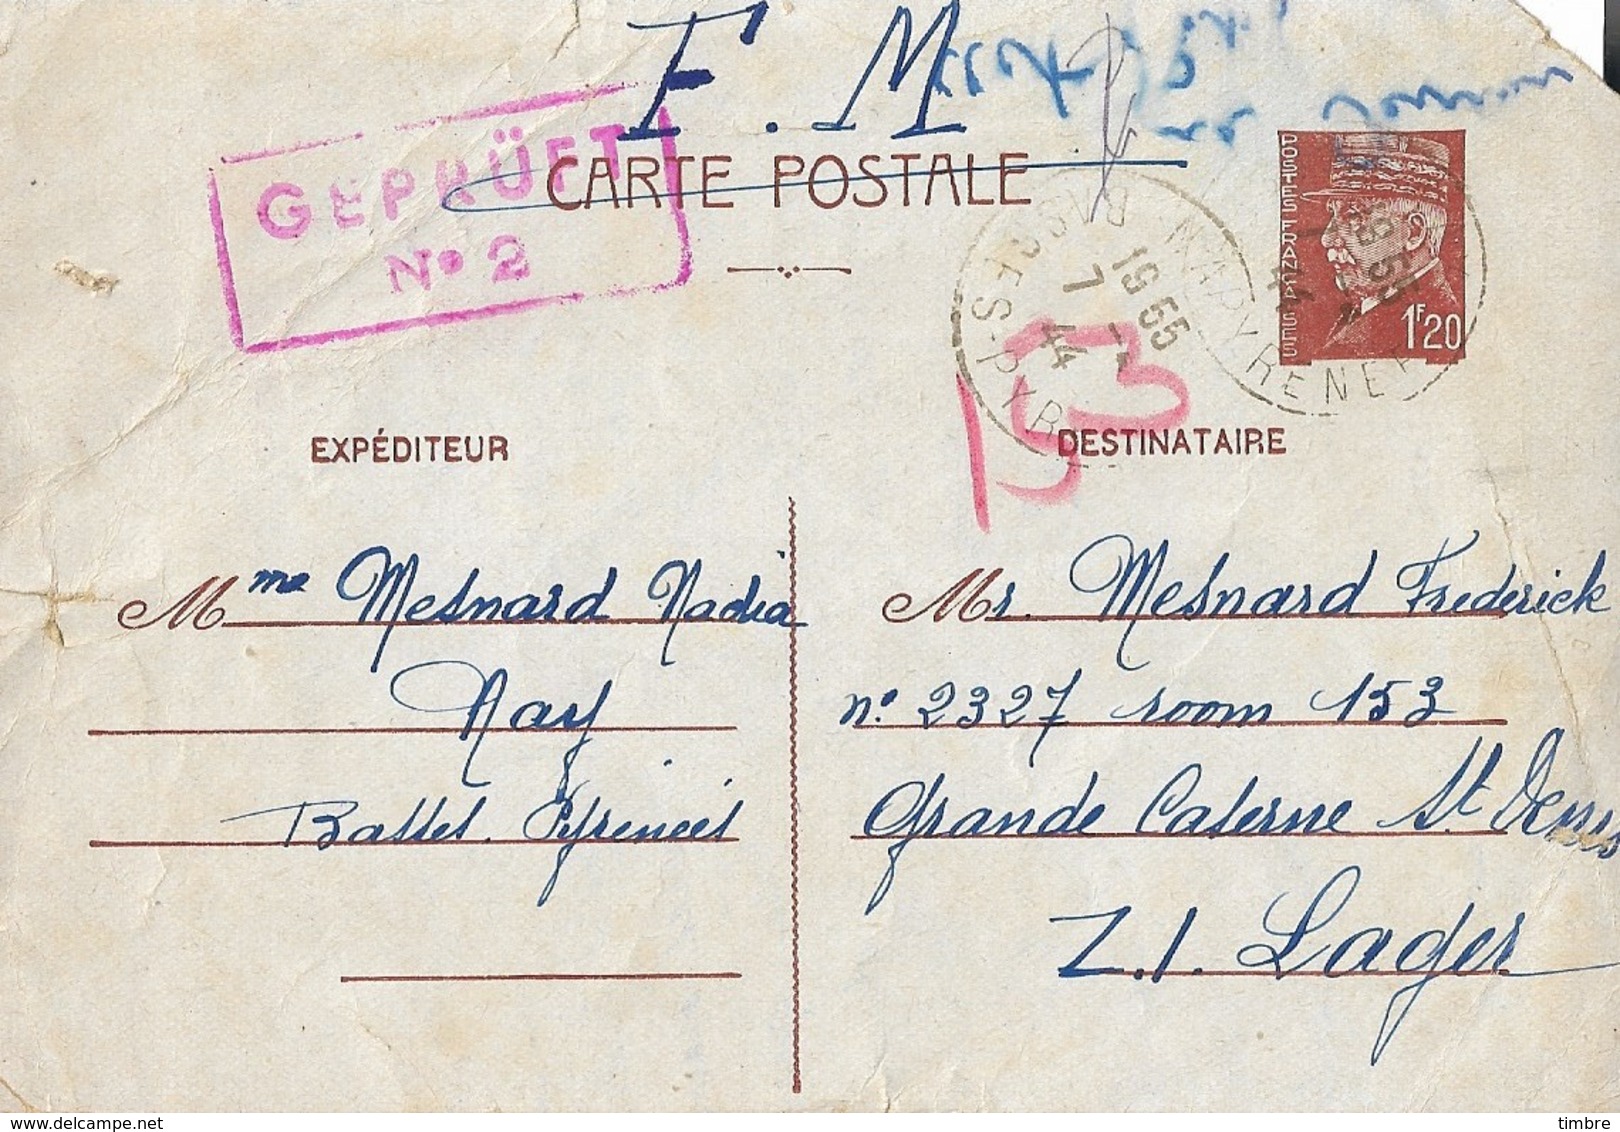 F. M
GEPRÜFT
N° 2
CARTE POSTALE
POSTES FRANÇAISES
1F20
NAY
BASSES-PYRENEES
19 55
7 -1
44
153
EXPÉDITEUR
DESTINATAIRE
Mme Mesnard Nadia
Nay
Basses. Pyrénées
Mr. Mesnard Frederick
n° 2327 room 153
Grande Caserne St Denis
Z.I. Lager
timbre